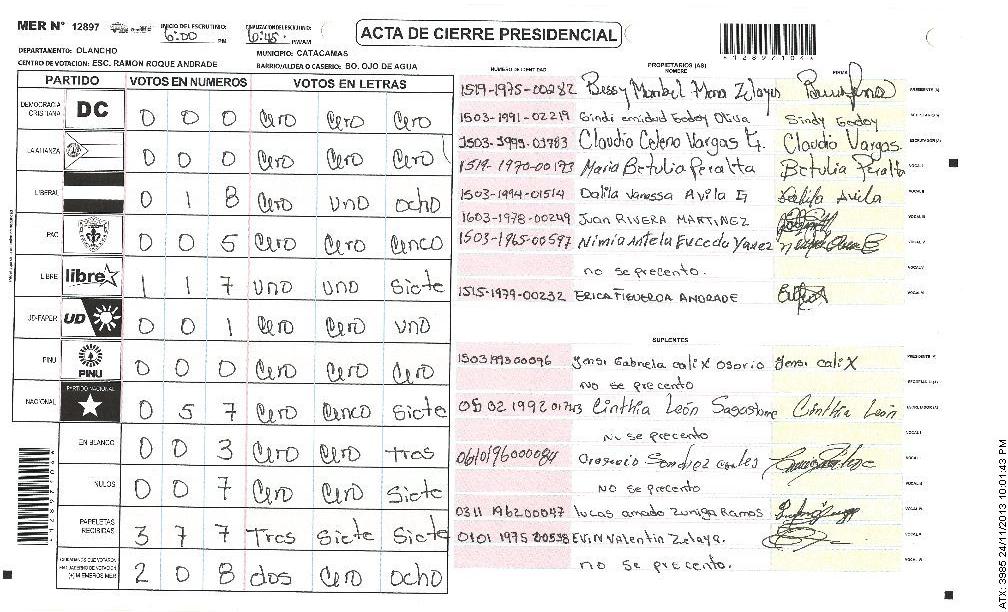 MER N° 12897 INICIO DEL ESCRUTINIO: 6:00 PM FINALIZACION DEL ESCRUTINIO: 6:45 PM/AM
ACTA DE CIERRE PRESIDENCIAL
DEPARTAMENTO: OLANCHO MUNICIPIO: CATACAMAS
CENTRO DE VOTACION: ESC. RAMON ROQUE ANDRADE BARRIO/ALDEA O CASERIO: BO. OJO DE AGUA
PARTIDO VOTOS EN NUMEROS VOTOS EN LETRAS
DEMOCRACIA CRISTIANA DC 0 0 0 Cero Cero Cero
LA ALIANZA 0 0 0 Cero Cero Cero
LIBERAL 0 1 8 Cero UNO Ocho
PAC 0 0 5 Cero Cero Cenco
LIBRE libre 1 1 7 UNO UNO Siete
UD-FAPER UD 0 0 1 Cero Cero UNO
PINU PINU 0 0 0 Cero Cero Cero
NACIONAL PARTIDO NACIONAL 0 5 7 Cero Cenco Siete
EN BLANCO 0 0 3 Cero Cero tras
NULOS 0 0 7 Cero Cero Siete
PAPELETAS RECIBIDAS 3 7 7 Tres Siete Siete
CIUDADANOS QUE VOTARON EN CUADERNO DE VOTACION (+) MIEMBROS MER 2 0 8 dos Cero Ocho
NUMERO DE IDENTIDAD PROPIETARIOS (AS) NOMBRE FIRMA
1519-1975-00282 Bessy Maribel Mora Zelaya PRESIDENTE (A)
1503-1991-02219 Sindi enidud Godoy Oliva Sindy Godoy SECRETARIO (A)
1503-1995-03783 Claudio Celeno Vargas G. Claudio Vargas. ESCRUTADOR (A)
1519-1970-00193 Maria Betulia Peralta Betulia Peralta VOCAL I
1503-1994-01514 Dalila Vanessa Avila G Dalila Avila VOCAL II
1603-1978-00249 Juan RIVERA MARTINEZ VOCAL III
1503-1965-00597 Nimia Antela Euceda Yanez VOCAL IV
no se precento. VOCAL V
1515-1979-00232 ERICA FIGUEROA ANDRADE VOCAL VI
SUPLENTES
1503199300096 Jensi Gabriela calix Osorio Jensi calix PRESIDENTE (A)
NO se precento SECRETARIO (A)
0502 1992 01743 Cinthia León Sagastume Cinthia León ESCRUTADOR (A)
No se precento VOCAL I
0610196000084 VOCAL II
NO se precento VOCAL III
0311 196200047 Lucas amado Zuniga Ramos VOCAL IV
0101 1975 00538 Elvin Valentin Zelaya. VOCAL V
no se precento. VOCAL VI
ATX: 3985 24/11/2013 10:01:43 PM